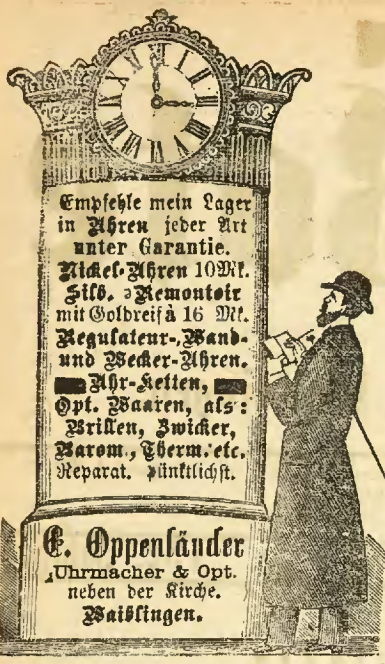 Empfehle mein Lager
in Uhren jeder Art
unter Garantie.
Nickel-Uhren 10 Mk.
Silb. Remontoir
mit Goldreif à 16 Mk.
Regulateur-, Wand-
und Wecker-Uhren.
Uhr-Ketten,
Opt. Waaren, als:
Brillen, Zwicker,
Barom., Therm. etc.
Reparat. pünktlichst.
E. Oppenländer
Uhrmacher & Opt.
neben der Kirche.
Waiblingen.